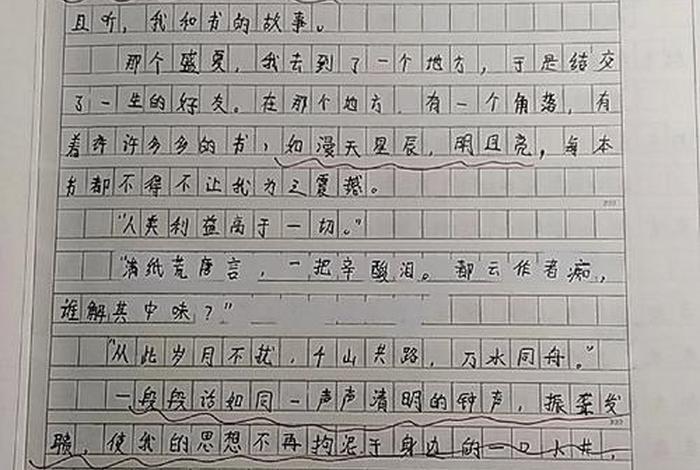 且听，我和书的故事。
那个盛夏，我去到了一个地方，于是结交
了一生的好友。在那个地方，有一个角落，有
着许许多多的书，如漫天星辰，明且亮，每本
书都不得不让我为之震撼。
“人类利益高于一切。”
“满纸荒唐言，一把辛酸泪。都云作者痴，
谁解其中味？”
“从此岁月不扰，千山共路，万水同舟。”
一段段话如同一声声清明的钟声，振聋发
聩，使我的思想不再拘泥于身边的一口水井，